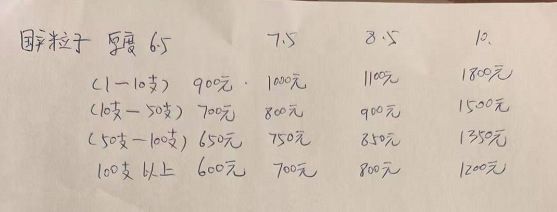 国产粒子 厚度 6.5 7.5 8.5 10.
(1-10支) 900元. 1000元 1100元 1800元
(10支-50支) 700元 800元 900元 1500元
(50支-100支) 650元 750元 850元 1350元
100支以上 600元 700元 800元 1200元